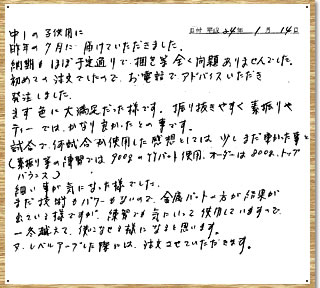 日付 平成 24年 1月 14日
中1の子供用に
昨年の7月に届けていただきました。
納期もほぼ予定通りで、梱包等全く問題ありませんでした。
初めての注文でしたので、お電話でアドバイスいただき
発注しました。
まず色に大満足だった様です。振り抜きやすく素振りや
ティーでは、かなり良かったとの事です。
試合で、何試合か使用した感想としては少しまだ重かった事と
(素振り等の練習では900gの竹バット使用。オーダーは800g、トップ
バランス)
細い事が気になった様でした。
まだ技術もパワーもないので、金属バットの方が結果が
出ている様ですが、練習でも気にいって使用していますので、
一冬越えて、使いこなせる様になると思います。
又、レベルアップした際には、注文させていただきます。